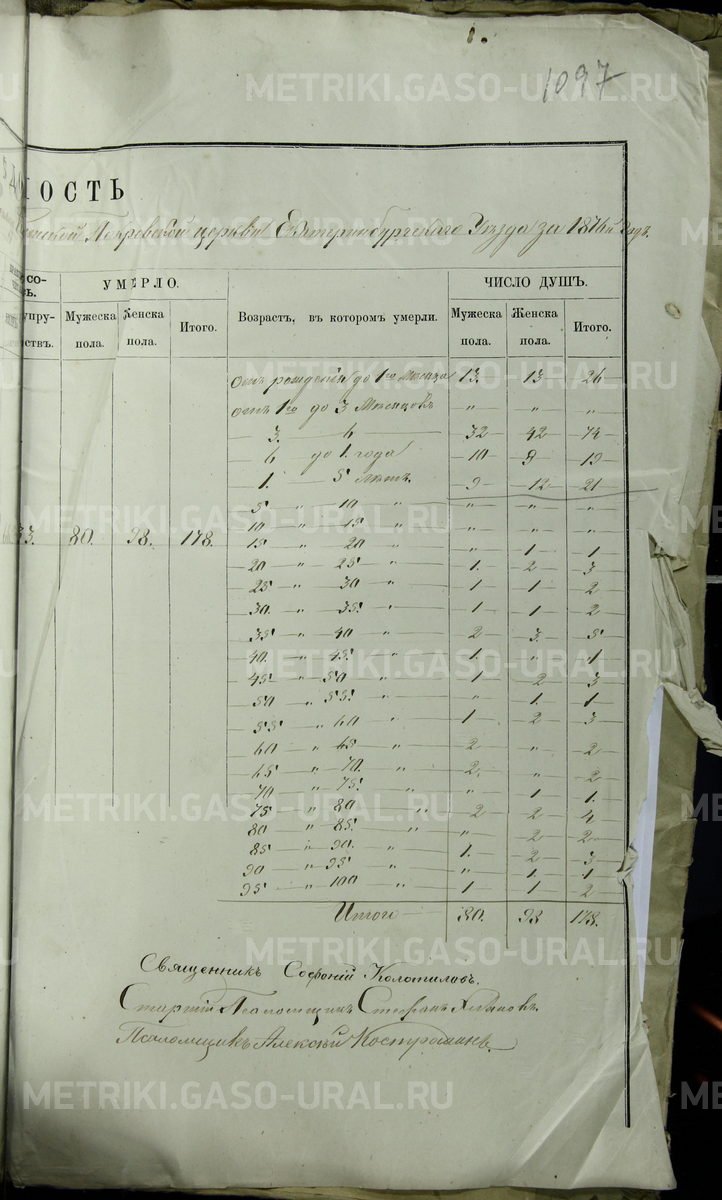 1.
1097
НОСТЬ
Покровской церкви Екатеринбургскаго Уѣзда за 1876й годъ.
УМЕРЛО. ЧИСЛО ДУШЪ.
Мужеска пола. Женска пола. Итого. Возрастъ, въ которомъ умерли. Мужеска пола. Женска пола. Итого.
отъ рожденія до 1го мѣсяца 13. 13 26
отъ 1го до 3 Мѣсяцовъ " " "
3. 6 32 42 74
6 до 1. года 10 9 19
1. 5 лѣтъ. 9 12 21
5 " 10 " " " "
10 " 15 " " " "
33. 80. 98. 178.
15 " 20 " " 1 1
20 " 25 " 1. 2 3
25 " 30 " 1 1 2
30. " 35. " 1 1 2
35 " 40 " 2 3. 5
40. " 45. " 1. " 1
45 " 50 " 1 2 3
50 " 55. " " 1. 1
55 " 60 " 1 2 3
60 " 65 " 2 " 2
65 " 70. " 2. " 2
70 " 75. " " 1 1.
75 " 80 " 2 2 4
80 " 85. " " 2 2
85 " 90. " 1. 2 3
90 " 95 " " 1. 1
95 " 100 " 1 1 2
Итого 80. 98 178.
Священникъ Софоній Колотиловъ.
Старшій Псаломщикъ Стефанъ
Псаломщикъ Алексѣй Костроминъ.
METRIKI.GASO-URAL.RU